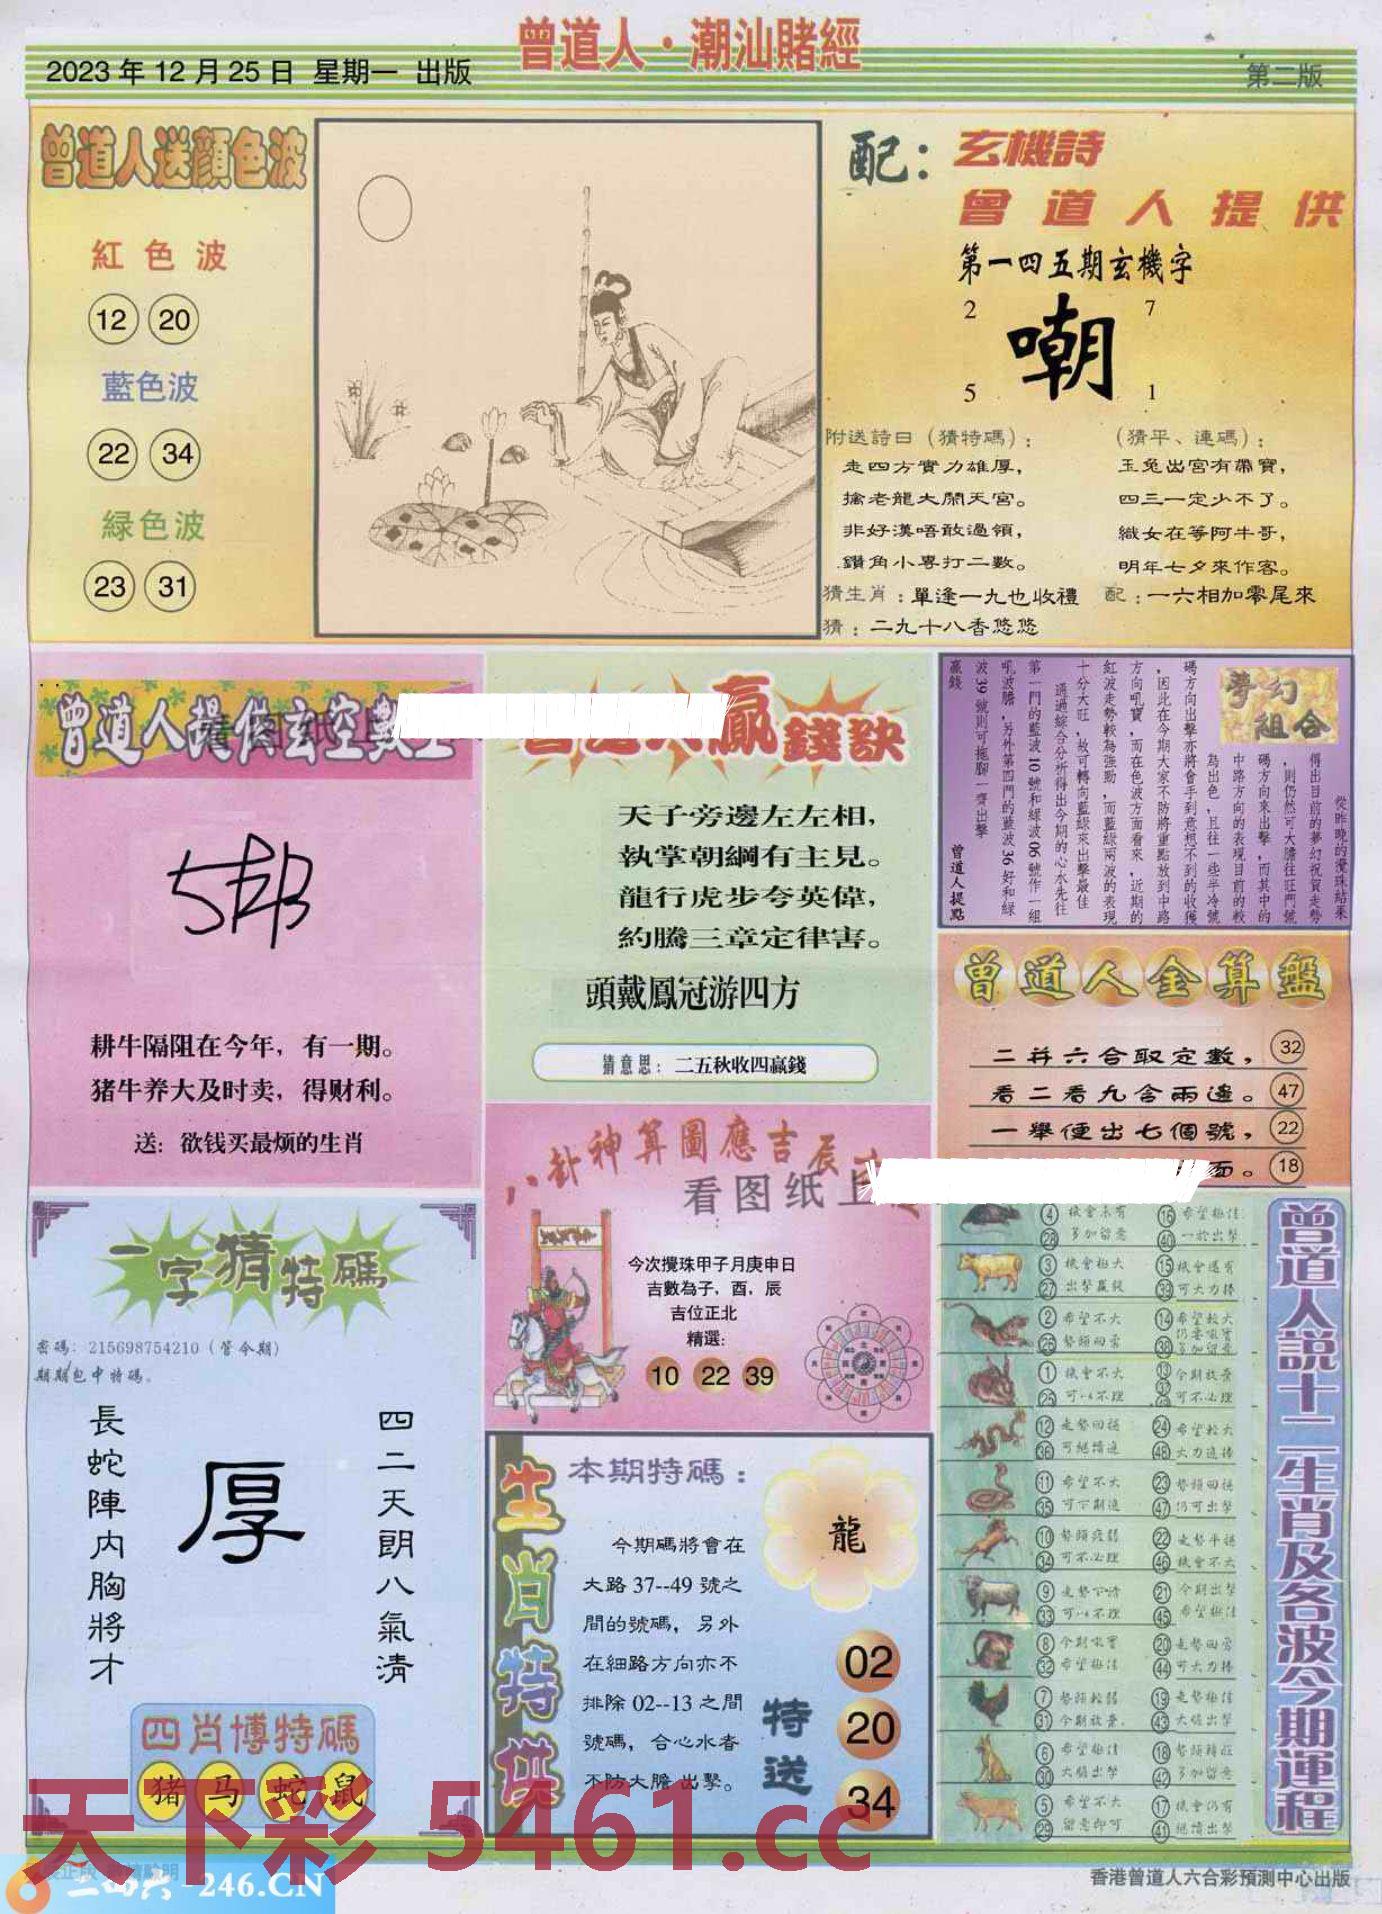 曾道人·潮汕賭經
2023年12月25日 星期一 出版
第二版
曾道人送顔色波
紅色波
12 20
藍色波
22 34
緑色波
23 31
配：玄機詩
曾道人提供
第一四五期玄機字
2 7
嘲
5 1
附送詩曰（猜特碼）：
走四方實力雄厚，
擒老龍大鬧天宮。
非好漢唔敢過領，
鑽角小專打二數。
（猜平、連碼）：
玉兔出宮有帶寶，
四三一定少不了。
織女在等阿牛哥，
明年七夕來作客。
猜生肖：單逢一九也收禮
配：一六相加零尾來
猜：二九十八香悠悠
曾道人提供玄空數
耕牛隔阻在今年，有一期。
猪牛养大及时卖，得财利。
送：欲钱买最烦的生肖
贏錢訣
天子旁邊左左相，
執掌朝綱有主見。
龍行虎步夸英偉，
約騰三章定律害。
頭戴鳳冠游四方
猜意思：二五秋收四贏錢
夢幻組合
從昨晚的攪珠結果
得出目前的夢幻祝賀走勢
，則仍然可大膽往旺門號
碼方向來出擊，而其中的
中路方向的表現目前的較
為出色，且往一些半冷號
碼方向出擊亦將會手到意想不到的收獲
，因此在今期大家不防將重點放到中路
方向吼寶，而在色波方面看來，近期的
紅波走勢較為強勁，而藍緑兩波的表現
十分大旺，故可轉向藍緑來出擊最佳
通過綜合分析得出今期的心水先往
第一門的藍波10號和緑波06號作一組
吼波膽，另外第四門的藍波36好和緑
波39號則可拖脚一齊出擊
贏錢
曾道人提點
曾道人金算盤
二并六合取定數，32
看二看九含兩邊。47
一舉便出七個號，22
面。18
八卦神算圖應吉辰
看图纸上
今次攪珠甲子月庚申日
吉數為子，酉，辰
吉位正北
精選：
10 22 39
一字猜特碼
密碼：215698754210（管今期）
期期包中特碼。
四二天朗八氣清
厚
長蛇陣内胸將才
四肖博特碼
猪 马 蛇 鼠
生肖特供
本期特碼：
龍
今期碼將會在
大路37--49號之
間的號碼，另外
在細路方向亦不
排除02--13之間
號碼，合心水者
不防大膽出擊。
特送
02
20
34
曾道人説十二生肖及各波今期運程
4 機會未有 16 希望極佳
28 多加留意 40 一於出擊
3 機會極大 15 機會還有
27 出擊贏錢 39 可大力捧
2 希望不大 14 希望較大
26 勢頭回落 38
1 機會不大 13 今期放棄
25 可以不理 37 可不必理
12 走勢回穩 24 希望較大
36 可繼續追 48 大力追捧
11 希望不大 23 勢頭回穩
35 可下期追 47 仍可出擊
10 勢頭疲弱 22 走勢平穩
34 可不必理 46 機會不大
9 走勢下滑 21 今期出擊
33 可以不理 45 希望極佳
8 今期吼寶 20 走勢回落
32 希望極佳 44 可大力捧
7 勢頭較弱 19 走勢極佳
31 今期放棄 43 大膽出擊
6 希望極佳 18 勢頭轉旺
30 大膽出擊 42 多加留意
5 希望不大 17 機會仍有
29 留意即可 41 繼續出擊
天下彩 5461.cc
二四六-246.CN
香港曾道人六合彩預測中心出版